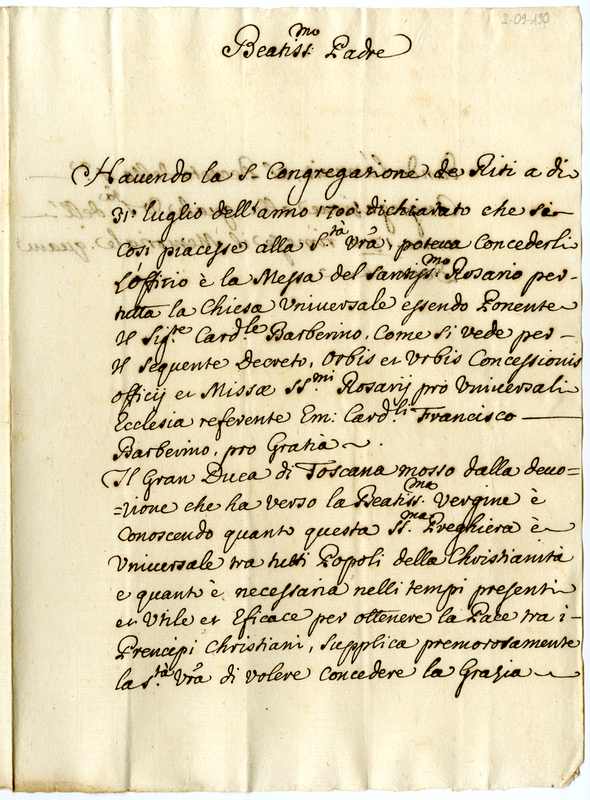 2-09-190
Beatiss:mo Padre
Havendo la S. Congregazione de Riti a di
31 luglio dell'anno 1700 dichiarato che se
cosi piacesse alla S.tà Vrã, poteva concederli
L'officio è la Messa del Santiss:mo Rosario per
tutta la Chiesa Universale essendo Ponente
il Sig.re Card.le Barberino, Come si vede per
il sequente Decreto, Orbis et Urbis Concessionis
officij et Missæ SS.mi Rosarij pro Universali
Ecclesia referente Em: Card.li Francisco
Barberino, pro Gratia
Il Gran Duca di Toscana mosso dalla devo=
=zione che ha verso la Beatiss:ma Vergine è
Conoscendo quanto questa SS.ma Preghiera è
Universale tra tutti Popoli della Christianità
e quanto è necessaria nelli tempi presenti
et Utile et Eficace per ottenere la Pace tra i
Prencipi Christiani, supplica premorosamente
la S.tà Vrã di volere concedere la Grazia